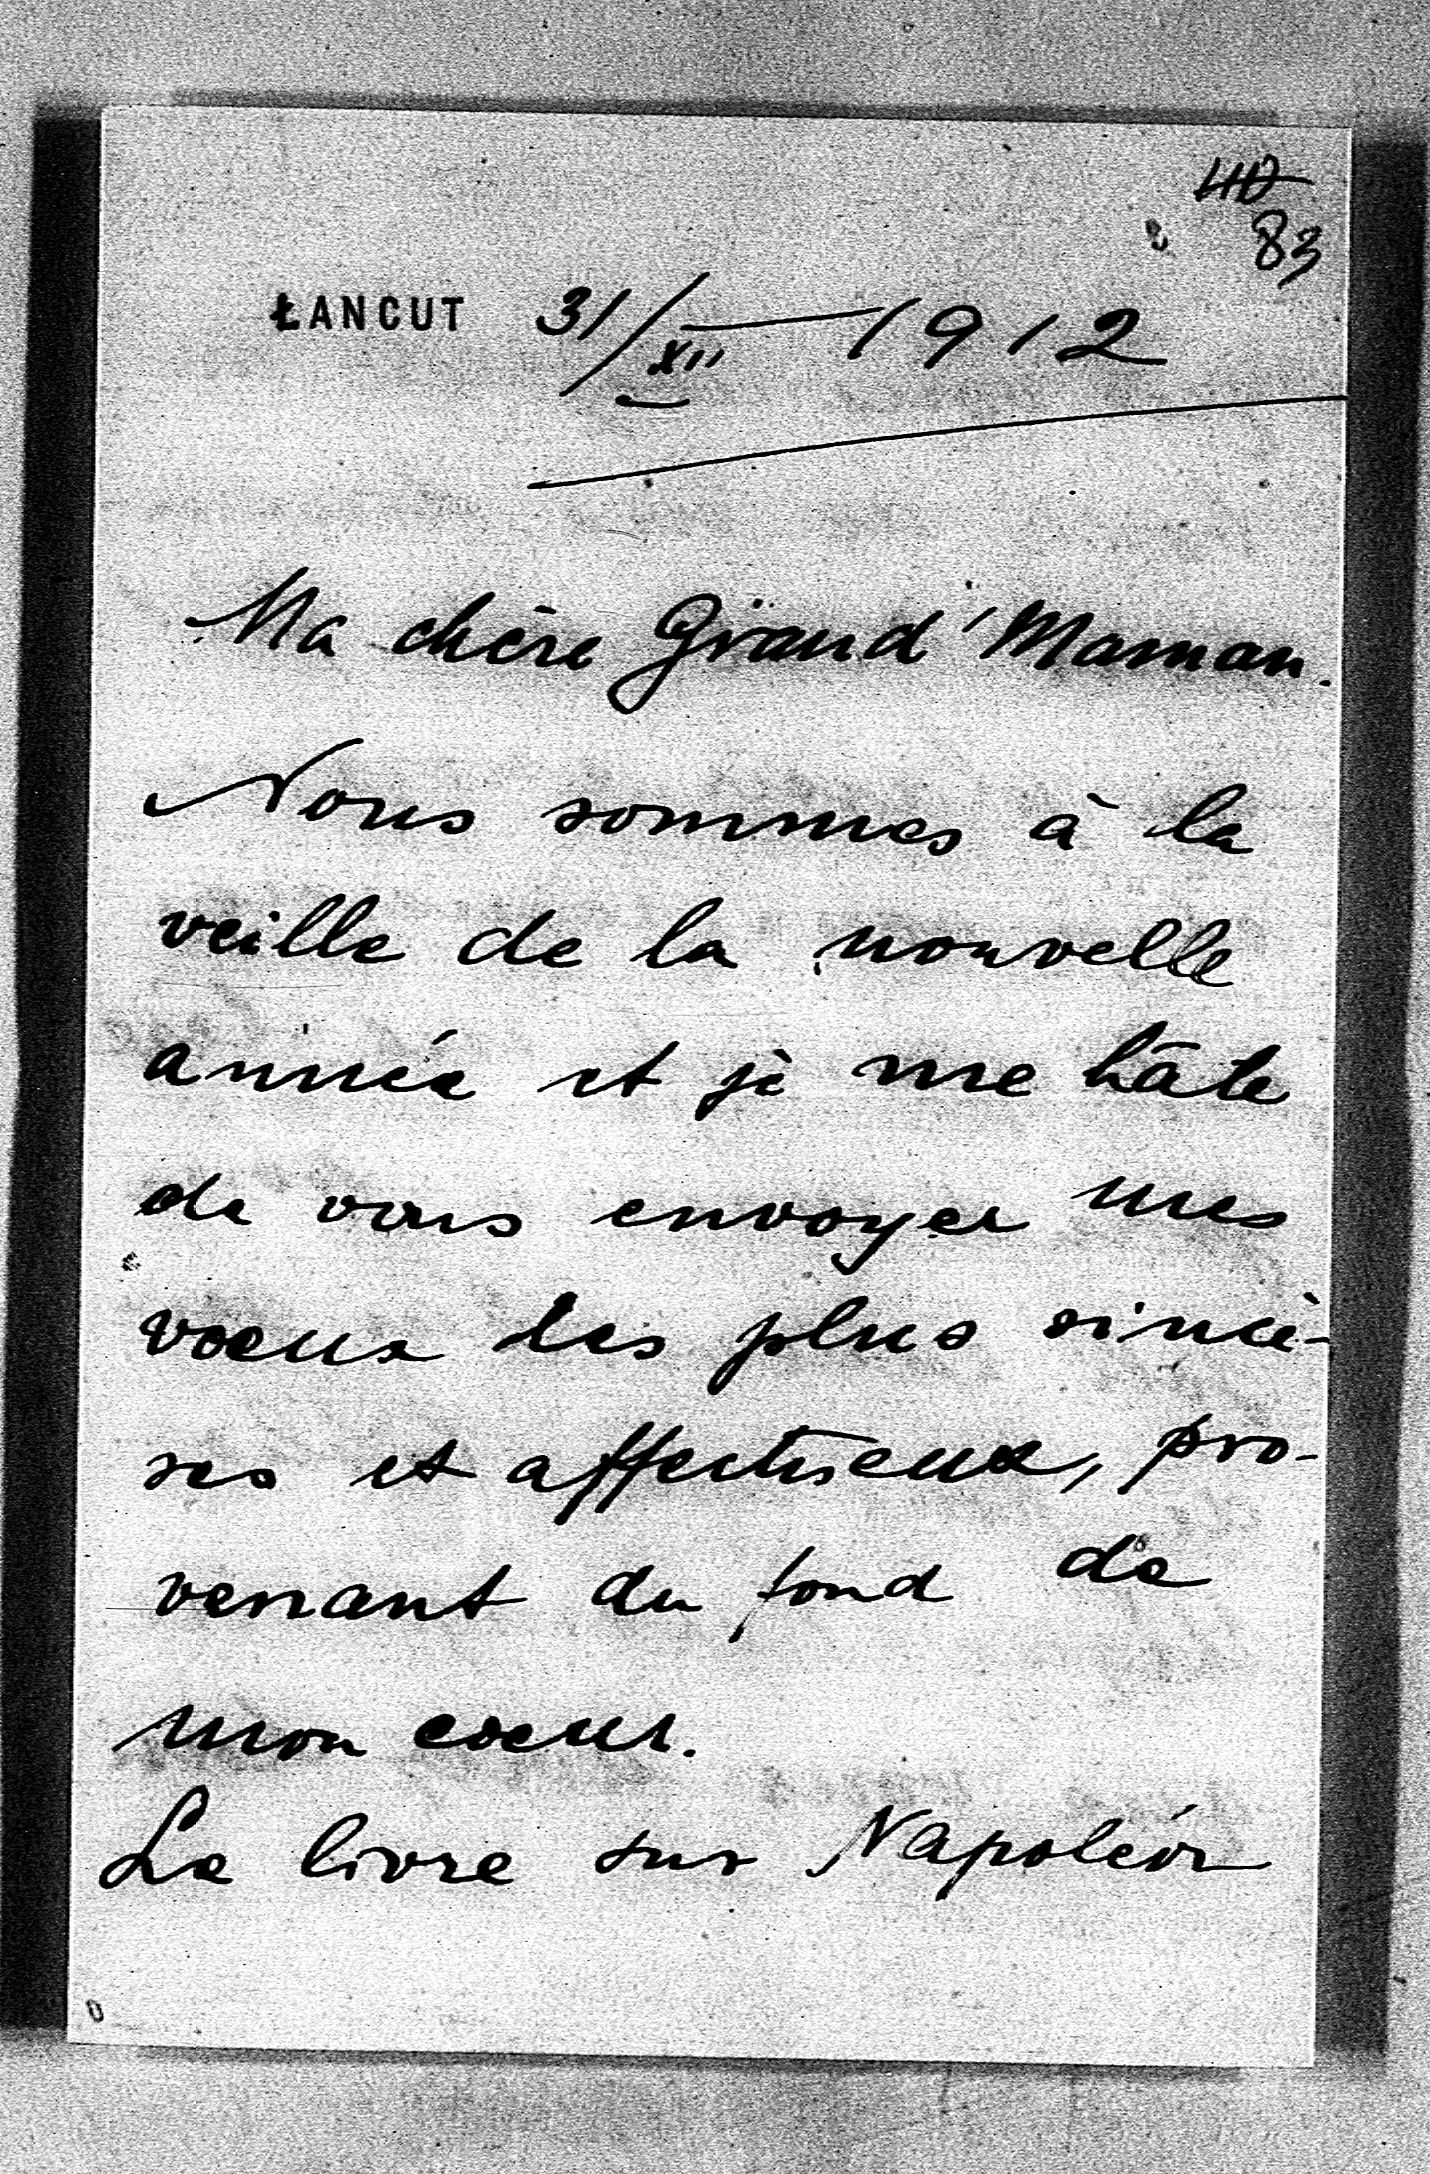 40
83
ŁANCUT 31/XII 1912
Ma chère Grand'Maman.
Nous sommes à la
veille de la nouvelle
année et je me hâte
de vous envoyer mes
voeux les plus sincè-
res et affectueux, pro-
venant du fond de
mon coeur.
Le livre sur Napoléon